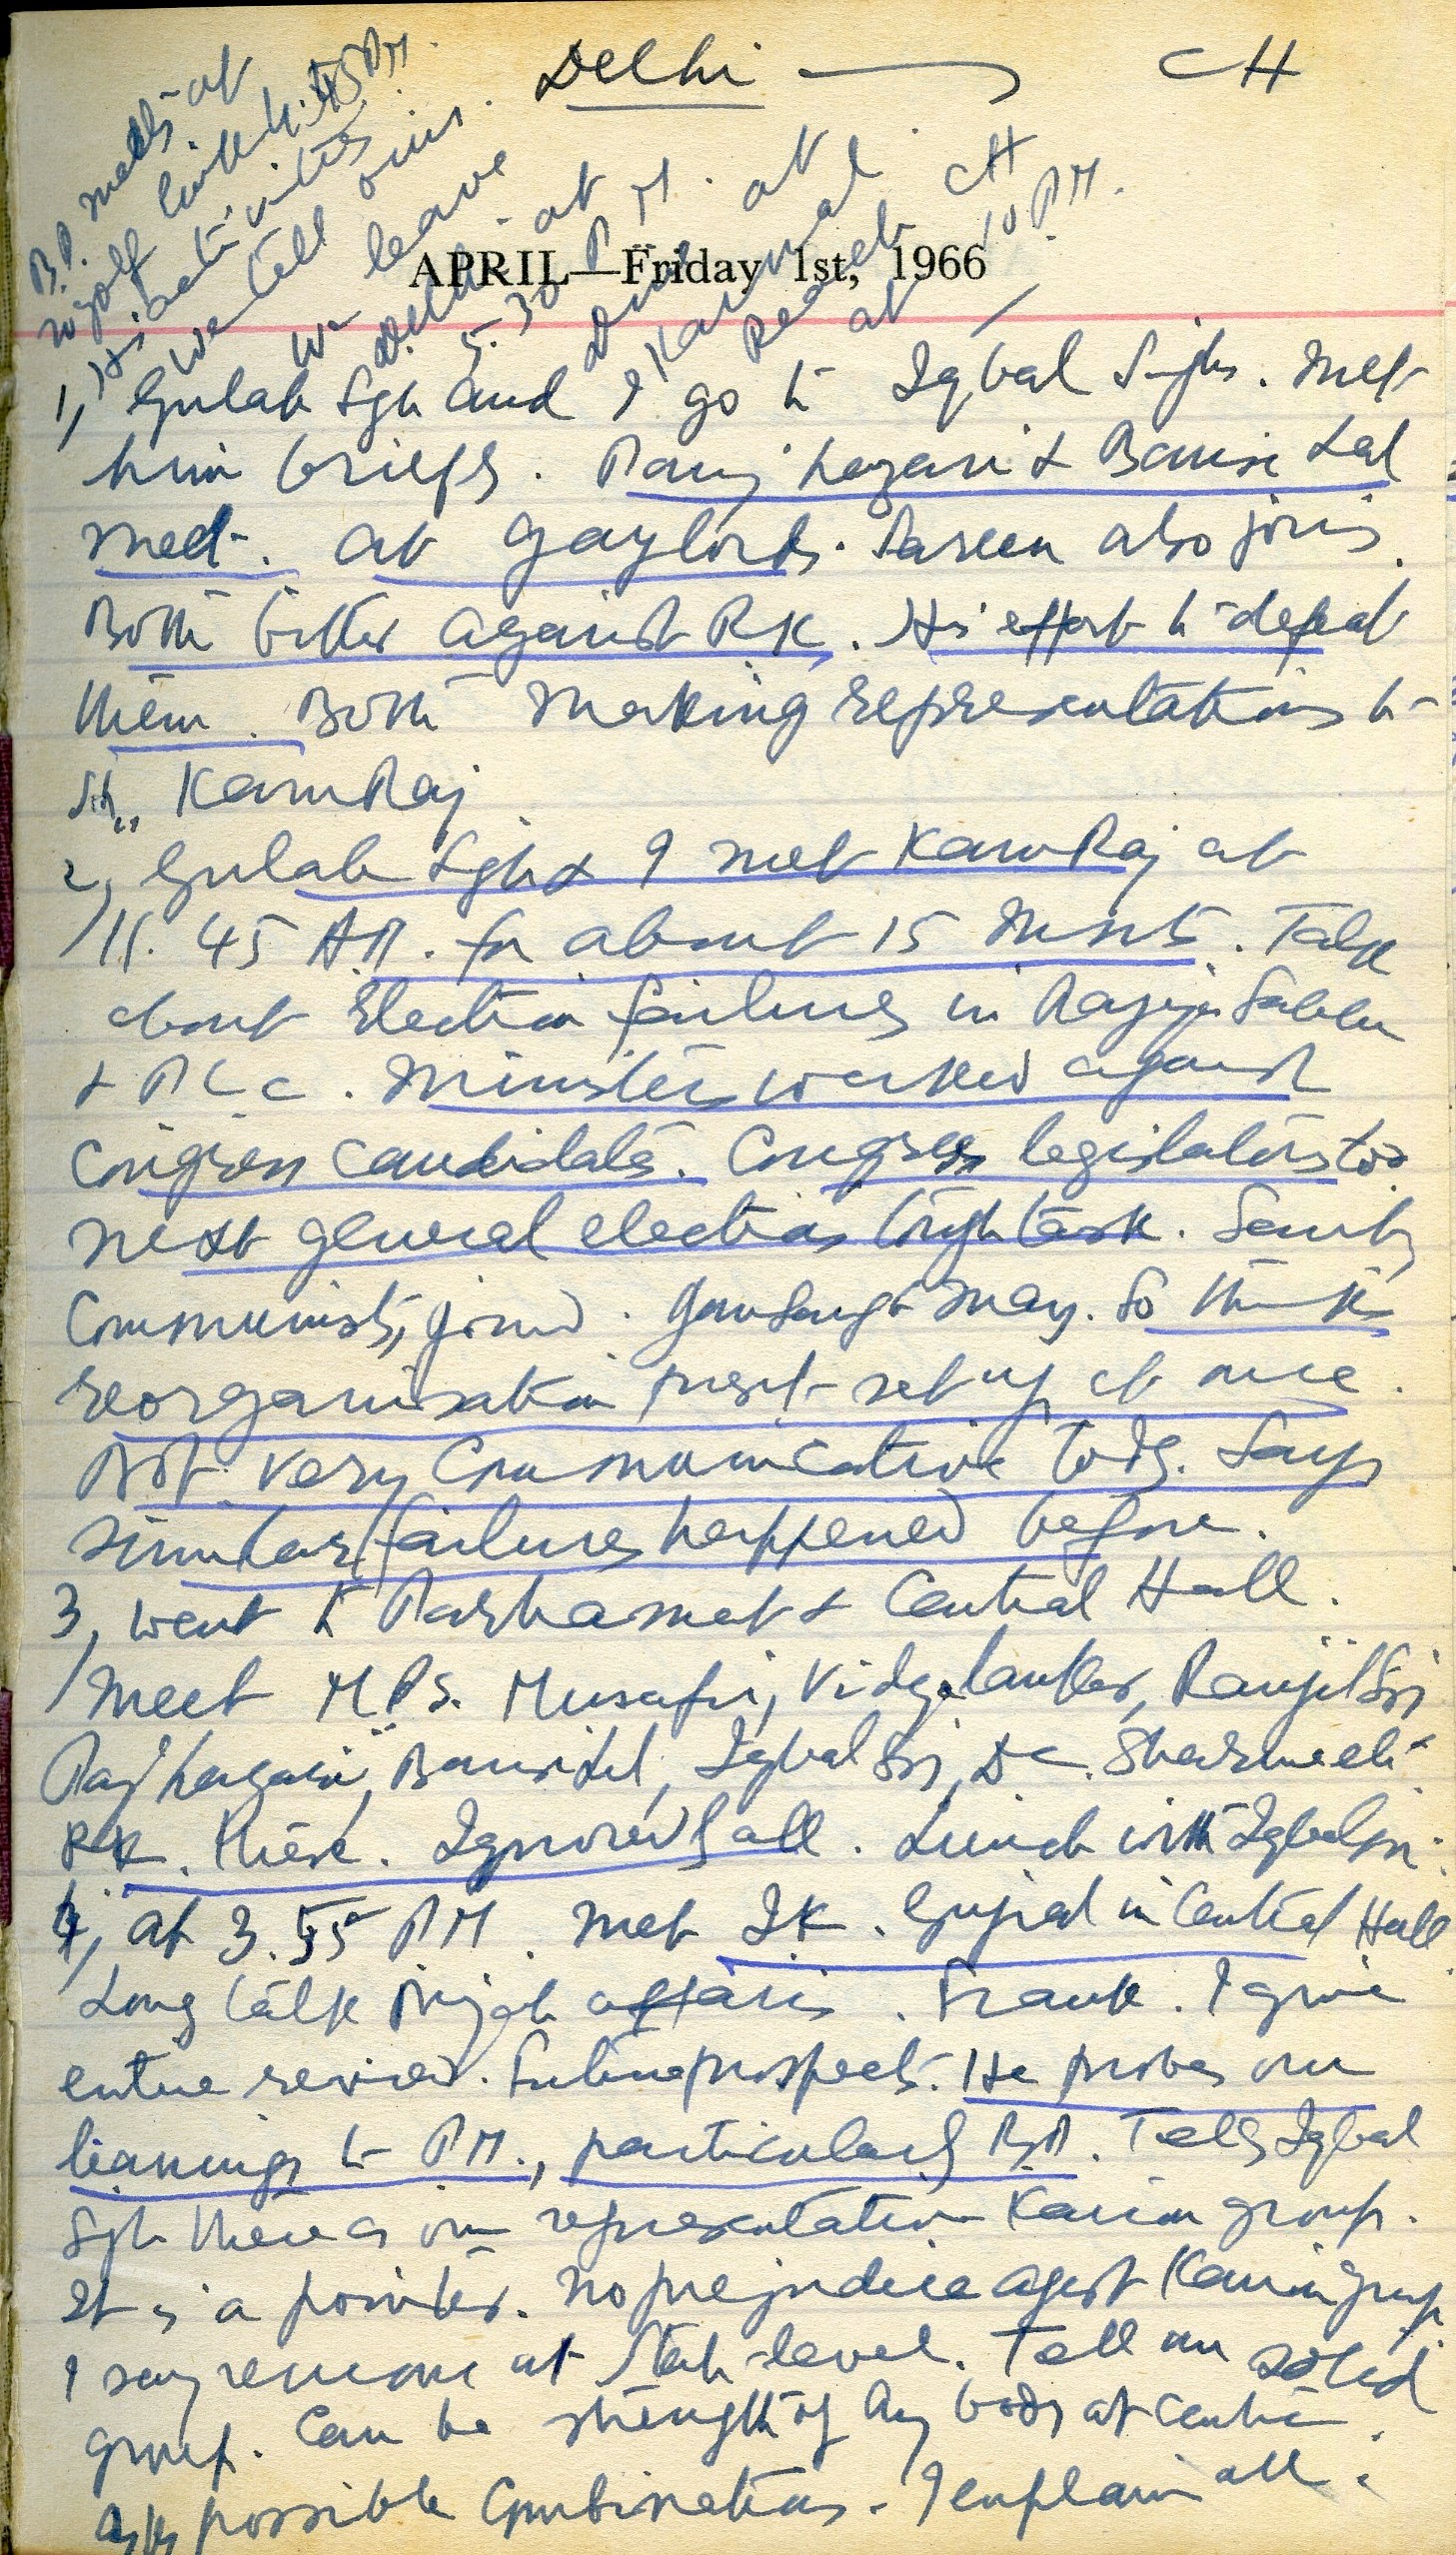 Delhi — CH
B.P. meets at
golf link 4.45 PM.
His activities
we tell ours.
We leave
Delhi at
5.30 PM. at
Karnal
Reach CH
at 10 PM.
APRIL—Friday 1st, 1966
1, Gulab Sgh and I go to Iqbal Singh. Met
him briefly. Ranj hazari & Bansi Lal
met. at Gaylords. also joins.
Both bitter against RK. His effort to defeat
them. Both making representations to
Sh. KamRaj
2, Gulab Sgh & I met KamRaj at
11.45 AM. for about 15 minuts. Talk
about Election failures in Rajya Sabha
& . Ministers worked against
Congress candidates. Congress legislators too.
next general elections tough task. Sant
Communists, joined. JanSangh may. So think
reorganisation presnt set up at once.
Not very Communicative today. Says
similar failures happened before.
3, went to Parliament & Central Hall.
Meet M.P.s. Musafir, Vidyalankar, Ranjit Sgh
, Bansi Lal, Iqbal Sgh, D.C. Sharma etc.
RK. there. Ignored all. Lunch with Iqbal Sgh.
4, at 3.55 PM. Met I.K. Gujral in Central Hall
Long talk Punjab affairs. Frank. I give
entire review. Future prospects. He probes our
leanings to PM., particularly B.P. Tells Iqbal
Sgh there is no representation Kairon group.
It is a pointer. No prejudice agst Kairon group
I say remove at State level. Tell our solid
group. Can be strength of any body at Centre.
Asks possible Combinations. I explain all.